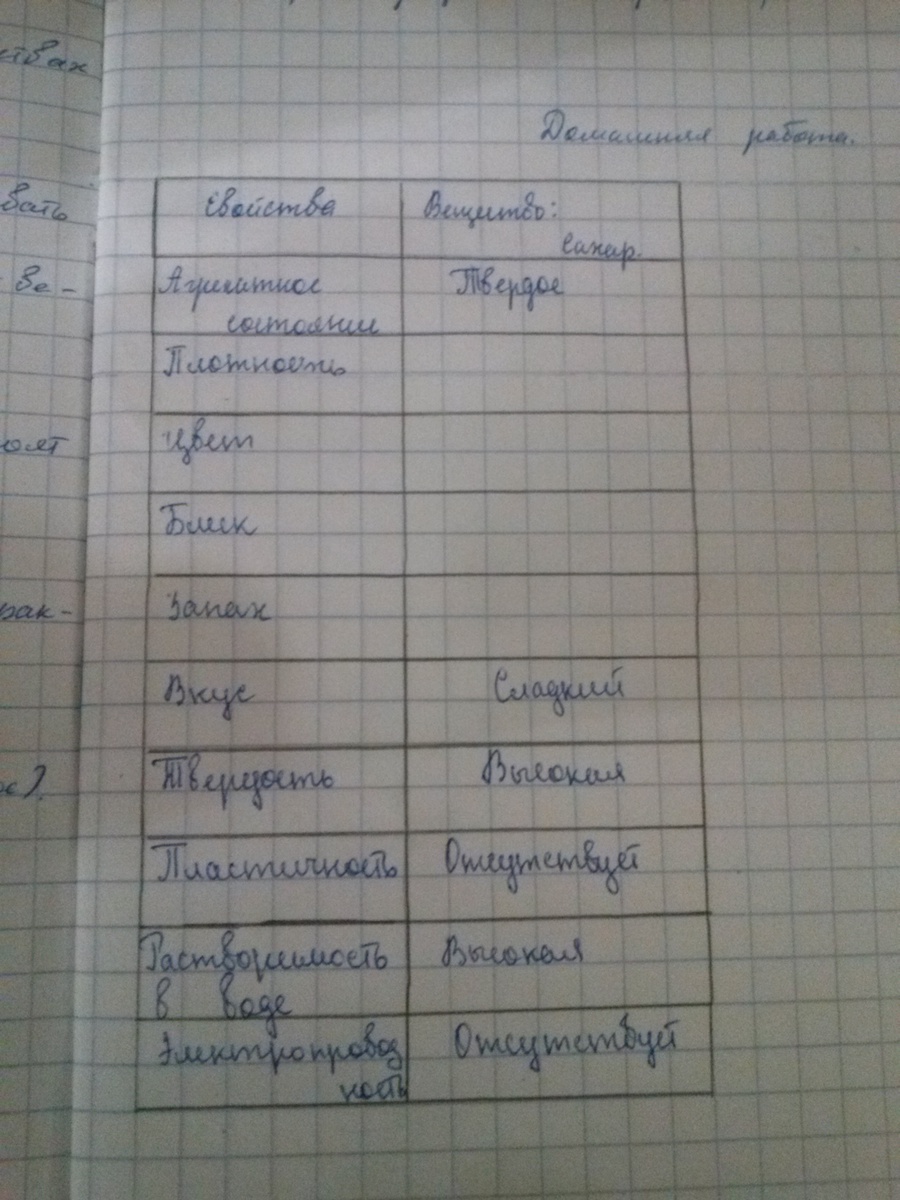 ствах
вать
ве-
Домашняя работа.
Свойства
Вещество:
сахар.
Агрегатное
состояние
Твердое
Плотность
Цвет
Блеск
Запах
Вкус
Сладкий
Твердость
Высокая
Пластичность
Отсутствует
Растворимость
в воде
Высокая
Электропровод
ность
Отсутствует